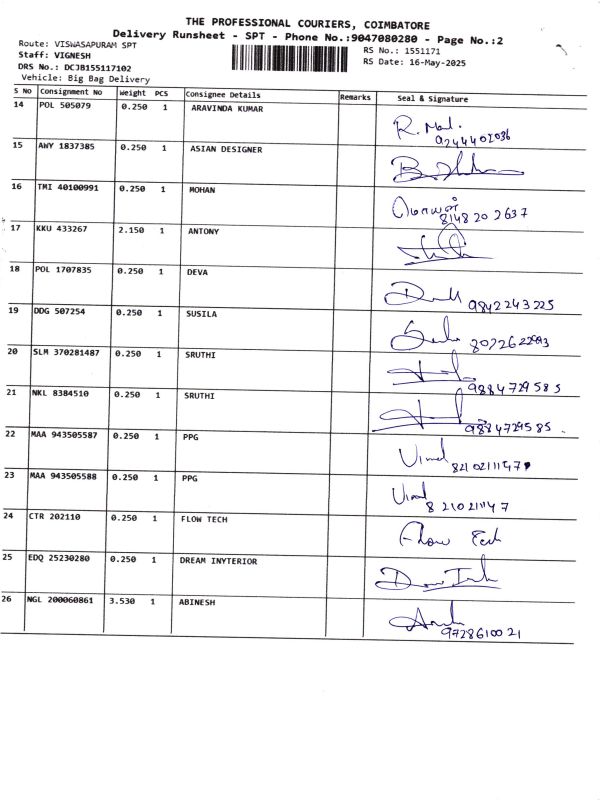 THE PROFESSIONAL COURIERS, COIMBATORE
Delivery Runsheet - SPT - Phone No.:9047080280 - Page No.:2
Route: VISWASAPURAM SPT
RS No.: 1551171
Staff: VIGNESH
RS Date: 16-May-2025
DRS No.: DCJB155117102
Vehicle: Big Bag Delivery
S NO Consignment NO Weight PCS Consignee Details Remarks Seal & Signature
14 POL 505079 0.250 1 ARAVINDA KUMAR
15 AWY 1837385 0.250 1 ASIAN DESIGNER
16 TMI 40100991 0.250 1 MOHAN மோகன்
8148 202637
17 KKU 433267 2.150 1 ANTONY
18 POL 1707835 0.250 1 DEVA
9842243225
19 DDG 507254 0.250 1 SUSILA
20 SLM 370281487 0.250 1 SRUTHI
9884729585
21 NKL 8384510 0.250 1 SRUTHI
9884729585
22 MAA 943505587 0.250 1 PPG Vimal
8210211147
23 MAA 943505588 0.250 1 PPG Vimal
8210211147
24 CTR 202110 0.250 1 FLOW TECH Flow Tech
25 EDQ 25230280 0.250 1 DREAM INYTERIOR
26 NGL 200060861 3.530 1 ABINESH
9728610021